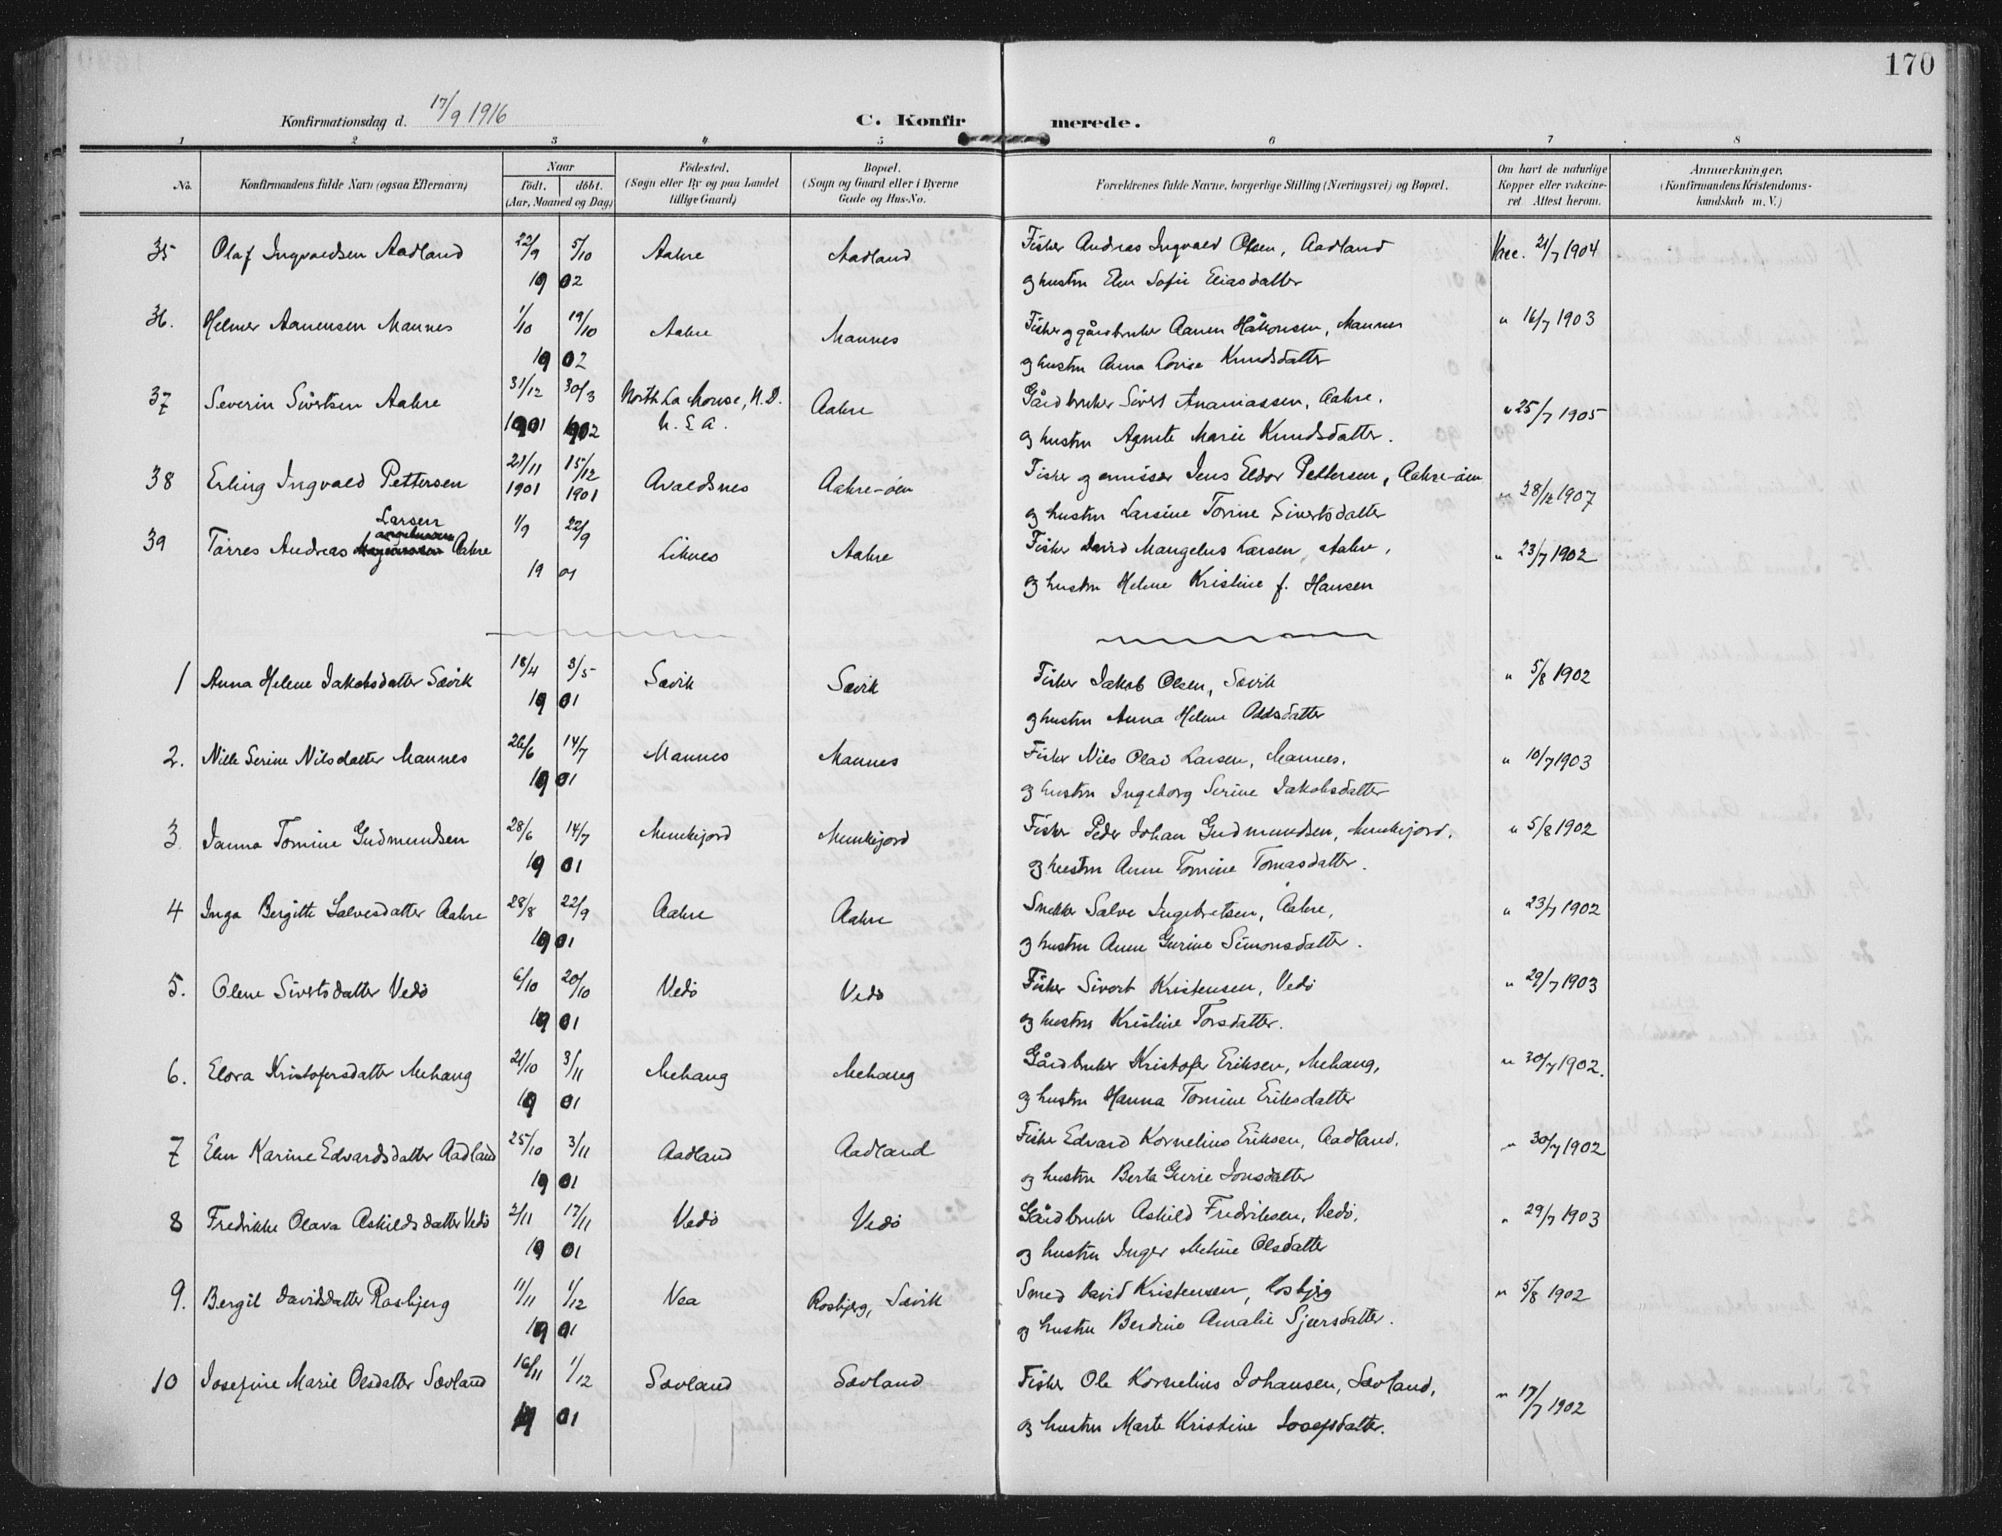 170
Konfirmationsdag d. 17/9 1916
C. Konfirmerede.
1 2 3 4 5 6 7 8
No. Konfirmandens fulde Navn (ogsaa Efternavn) Naar født. døbt. (Aar, Maaned og Dag) Fødested. (Sogn eller By og paa Landet tillige Gaard) Bopæl. (Sogn og Gaard eller i Byerne Gade og Hus-No. Forældrenes fulde Navne, borgerlige Stilling (Næringsvei) og Bopæl. Om havt de naturlige Kopper eller vakcineret. Attest herom. Anmærkninger. (Konfirmandens Kristendomskundskab m. V.)
35 Olaf Ingvaldsen Aadland 22/9 5/10 Aakre Aadland Fisker Andreas Ingvald Olsen, Aadland Vacc. 21/7 1904
1902 og hustru Elen Sofie Eliasdatter
36. Helmer Aanensen Mannes 1/10 19/10 Aakre Mannes Fisker og gårdbruker Aanen Håkonsen, Mannes " 16/7 1903
1902 og hustru Anna Lovise Knudsdatter
37 Severin Sivertsen Aakre 31/12 30/3 North La Mouse, N.D. Aakre Gårdbruker Sivert Ananiassen, Aakre. " 25/7 1905
1901 1902 U.S.A. og hustru Agnete Marie Knudsdatter.
38 Erling Ingvald Pettersen 21/11 15/12 Avaldsnes Aakre-øen Fisker og emissær Jens Eldor Pettersen, Aakre-øen " 28/12 1907
1901 1901 og hustru Larsine Torine Sivertsdatter
Larsen
39 Tørres Andreas Aakre 1/9 22/9 Liknes Aakre Fisker David Mangelus Larsen, Aakre, " 23/7 1902
1901 og hustru Helene Kristine f. Hansen
1 Anna Helene Jakobsdatter Sævik 18/4 3/5 Sævik Sævik Fisker Jakob Olsen, Sævik " 5/8 1902
1901 og hustru Anna Helene Oddsdatter
2. Nille Serine Nilsdatter Mannes 26/6 14/7 Mannes Mannes Fisker Nils Olai Larsen, Mannes. " 10/7 1903
1901 og hustru Ingeborg Serine Jakobsdatter
3. Janna Tomine Gudmundsen 28/6 14/7 Munkejord Munkejord Fisker Peder Johan Gudmundsen, Munkejord. " 5/8 1902
1901 og hustru Anne Tomine Tomasdatter.
4 Inga Bergitte Salvesdatter Aakre 28/8 22/9 Aakre Aakre Snekker Salve Ingebretsen, Aakre, " 23/7 1902
1901 og hustru Anne Gurine Simonsdatter.
5. Olene Sivertsdatter Vedø 6/10 20/10 Vedø Vedø Fisker Sivert Kristensen, Vedø " 29/7 1903
1901 og hustru Kristine Torsdatter.
6. Elora Kristofersdatter Mehaug 21/10 3/11 Mehaug Mehaug Gårdbruker Kristofer Eriksen, Mehaug, " 30/7 1902.
1901 og hustru Hanna Tomine Eriksdatter
7 Elen Karine Edvardsdatter Aadland 25/10 3/11 Aadland Aadland Fisker Edvard Kornelius Eriksen, Aadland, " 30/7 1902
1901 og hustru Berta Gurie Jonsdatter
8 Fredrikke Olava Askildsdatter Vedø 2/11 17/11 Vedø Vedø Gårdbruker Askild Fredriksen, Vedø, " 29/7 1903
1901 og hustru Inger Meline Olsdatter
9. Bergit Davidsdatter Rosbjerg 11/11 1/12 Vea Rosbjerg, Sævik Smed David Kristensen, Rosbjerg " 5/8 1902
1901 og hustru Berdine Amalie Sjursdatter.
10 Josefine Marie Olsdatter Sævland 16/11 1/12 Sævland Sævland Fisker Ole Kornelius Johansen, Sævland, " 17/7 1902
1901 og hustru Marte Kristine Josefsdatter.